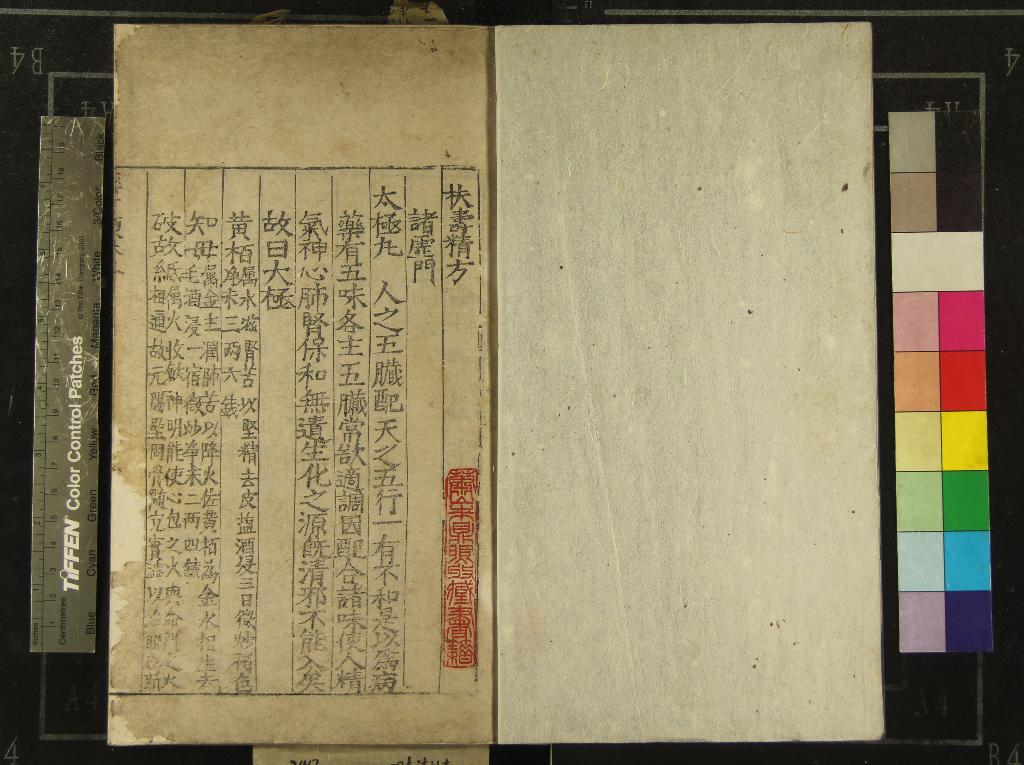 扶壽精方
諸虛門
太極丸 人之五臟配天之五行一有不和是以為病
藥有五味各主五臟常欲適調因配合諸味使人精
氣神心肺腎保和無遺生化之源旣清邪不能入矣
故曰太極
黄栢屬水滋腎苦以堅精去皮塩酒浸三日微炒褐色
净末三兩六錢
知母屬金主潤肺苦以降火佐黄栢為金水相生去
毛酒浸一宿微炒净末二兩四錢
破故紙屬火收斂神明能使心包之火與命門之火
相通故元陽堅固骨髓充實
TIFFEN Color Control Patches
© The Tiffen Company, 2000
Inches
Centimetres
Blue
Cyan
Green
Yellow
Red
Magenta
White
3/Color
Black
B4
A4